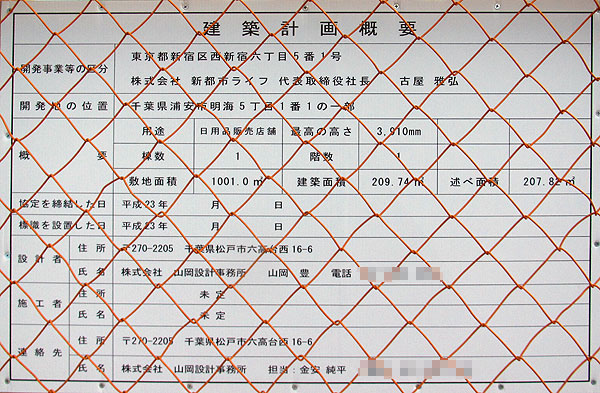 建築計画概要
開発事業等の区分
東京都新宿区西新宿六丁目5番1号
株式会社 新都市ライフ 代表取締役社長 古屋 雅弘
開発地の位置 千葉県浦安市明海5丁目1番1の一部
概要
用途 日用品販売店舗 最高の高さ 3,910mm
棟数 1 階数 1
敷地面積 1001.0㎡ 建築面積 209.74㎡ 述べ面積 207.82㎡
協定を締結した日 平成23年 月 日
標識を設置した日 平成23年 月 日
設計者
住所 〒270-2205 千葉県松戸市六高台西16-6
氏名 株式会社 山岡設計事務所 山岡 豊 電話
施工者
住所 未定
氏名 未定
連絡先
住所 〒270-2205 千葉県松戸市六高台西16-6
氏名 株式会社 山岡設計事務所 担当:金安 純平